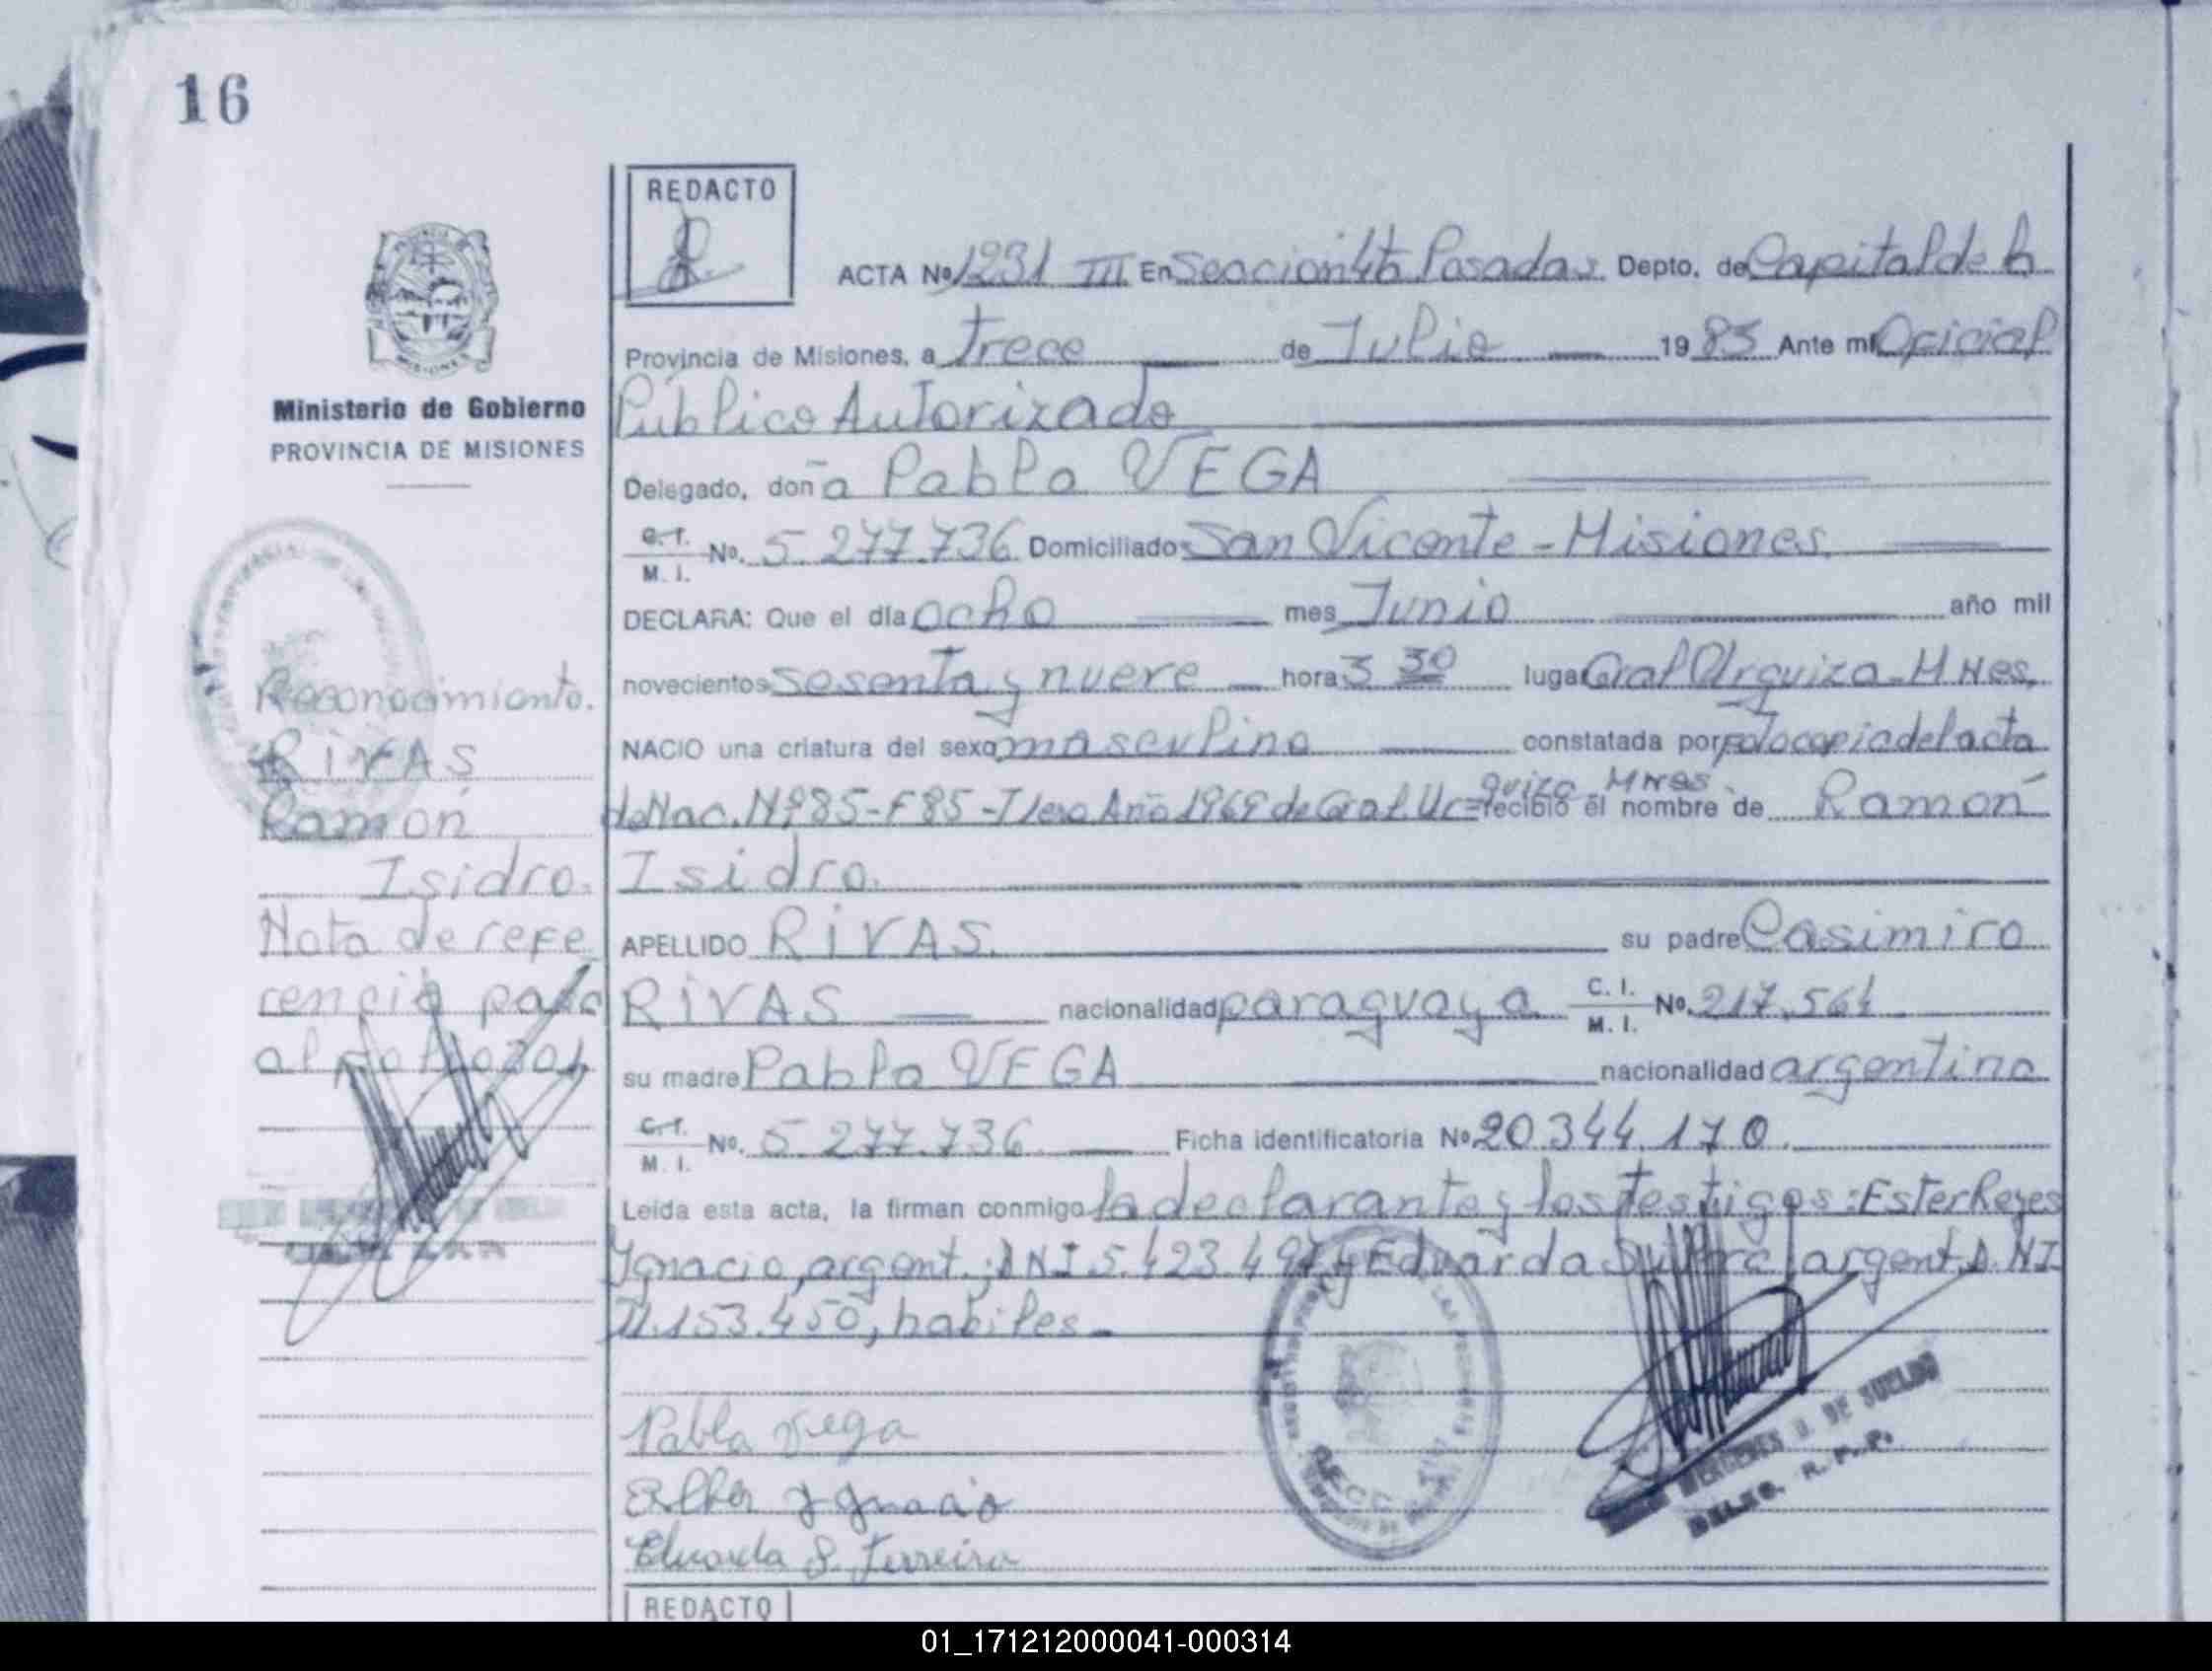 16
REDACTO
ACTA Nº 1231 III En Seccion 4ta Posadas Depto. de Capital de la
Provincia de Misiones, a Trece de Julio 1983 Ante mí Oficial
Público Autorizado
Delegado, doña Pabla VEGA
C.I. M.I. No. 5.277.736 Domiciliado San Vicente - Misiones
DECLARA: Que el día ocho mes Junio año mil
novecientos sesenta y nueve hora 3 30 lugar Gral Urquiza - Mnes,
NACIO una criatura del sexo masculino constatada por fotocopia del acta
de Nac. Nº 85 - F 85 - T 1ero Año 1969 de Gral. Ur=quiza - Mnes. recibió el nombre de Ramón
Isidro.
APELLIDO RIVAS. su padre Casimiro
RIVAS nacionalidad paraguaya C.I. M.I. No. 217.564
su madre Pabla VEGA nacionalidad argentina
C.I. M.I. No. 5.277.736 Ficha identificatoria Nº 20.344.170.
Leida esta acta, la firman conmigo la declarante y los testigos: Ester Reyes
Ygnacio, argent., DNI 5.423.497 y Eduarda argent. D.NI
11.153.450, habiles.-
Pabla Vega
Ester Ygnacio
Eduarda S. Ferreira
DE SUELDO
DELEG. R. P. P.
Ministerio de Gobierno
PROVINCIA DE MISIONES
Reconocimiento.
RIVAS
Ramón
Isidro.
Nota de refe
rencia pasa
al
REDACTO
01_171212000041-000314